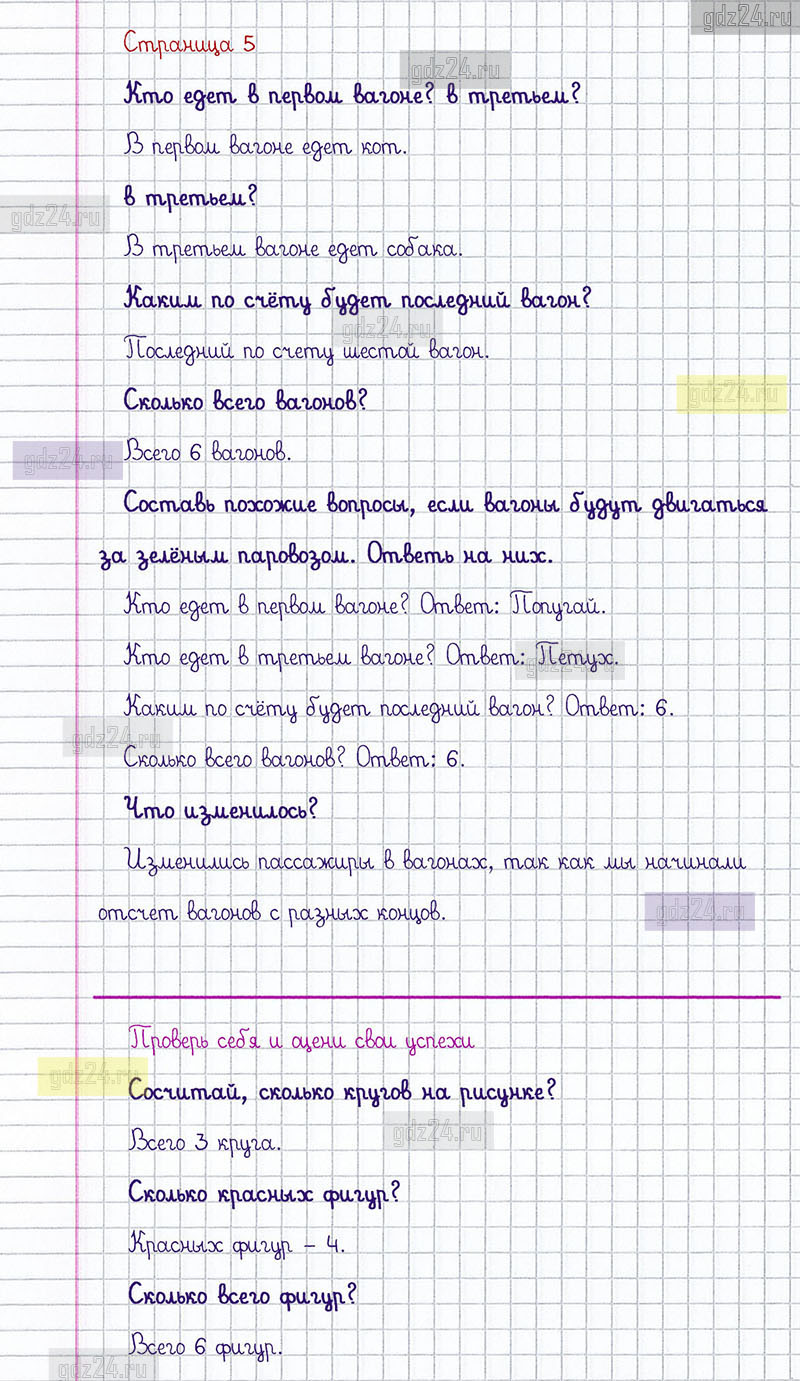 gdz24.ru
Страница 5
gdz24.ru
Кто едет в первом вагоне? в третьем?
В первом вагоне едет кот.
в третьем?
gdz24.ru
В третьем вагоне едет собака.
Каким по счёту будет последний вагон?
gdz24.ru
Последний по счету шестой вагон.
gdz24.ru
Сколько всего вагонов?
gdz24.ru
Всего 6 вагонов.
Составь похожие вопросы, если вагоны будут двигаться
за зелёным паровозом. Ответь на них.
Кто едет в первом вагоне? Ответ: Попугай.
Кто едет в третьем вагоне? Ответ: Петух.
gdz24.ru
Каким по счёту будет последний вагон? Ответ: 6.
gdz24.ru
Сколько всего вагонов? Ответ: 6.
Что изменилось?
Изменились пассажиры в вагонах, так как мы начинали
отсчет вагонов с разных концов.
gdz24.ru
Проверь себя и оцени свои успехи
gdz24.ru
Сосчитай, сколько кругов на рисунке?
gdz24.ru
Всего 3 круга.
Сколько красных фигур?
Красных фигур – 4.
Сколько всего фигур?
Всего 6 фигур.
gdz24.ru